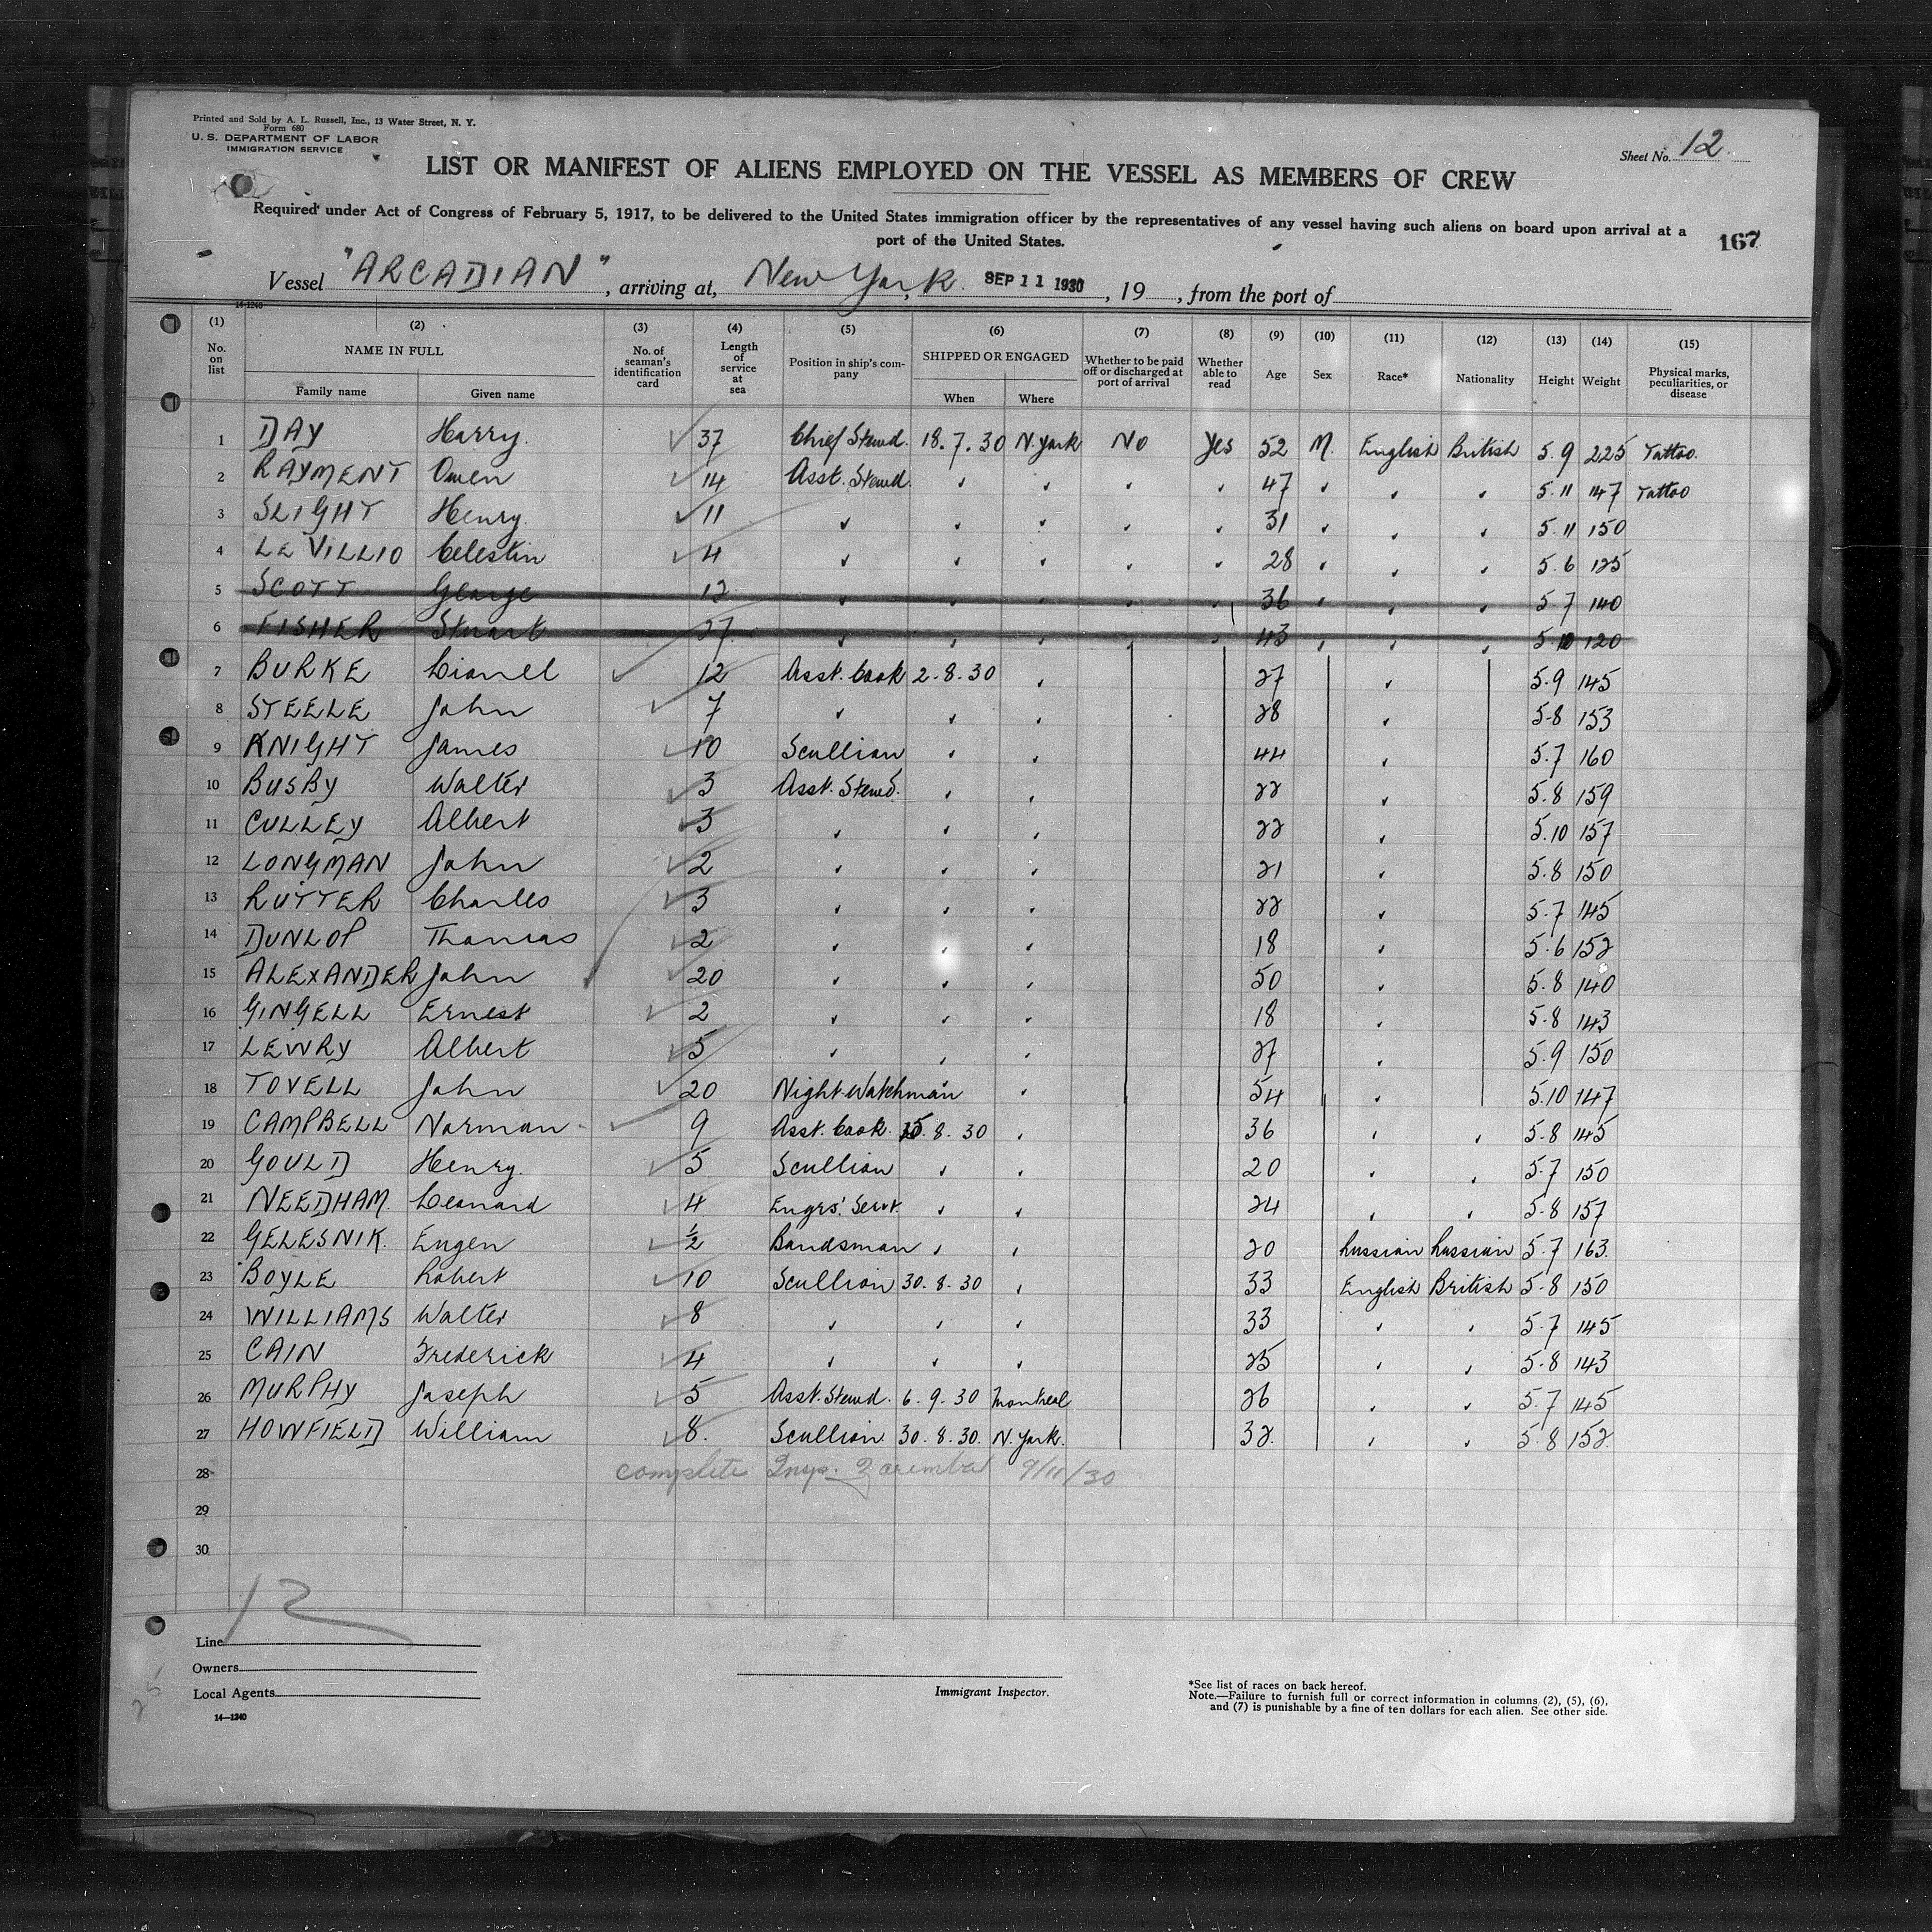 Printed and Sold by A. L. Russell, Inc., 13 Water Street, N. Y.
Form 680
U. S. DEPARTMENT OF LABOR
IMMIGRATION SERVICE
Sheet No. 12.
LIST OR MANIFEST OF ALIENS EMPLOYED ON THE VESSEL AS MEMBERS OF CREW
Required under Act of Congress of February 5, 1917, to be delivered to the United States immigration officer by the representatives of any vessel having such aliens on board upon arrival at a
port of the United States.
167
Vessel "ARCADIAN", arriving at, New York, SEP 11 1930, 19, from the port of
14-1240
(1) (2) (3) (4) (5) (6) (7) (8) (9) (10) (11) (12) (13) (14) (15)
No. on list NAME IN FULL Family name Given name No. of seaman's identification card Length of service at sea Position in ship's company SHIPPED OR ENGAGED When Where Whether to be paid off or discharged at port of arrival Whether able to read Age Sex Race* Nationality Height Weight Physical marks, peculiarities, or disease
1 DAY Harry. ✓ 37 Chief Stewd. 18.7.30 N. York No Yes 52 M. English British 5.9 225 Tattoo.
2 RAYMENT Owen ✓ 14 Asst. Stewd. ✓ ✓ ✓ ✓ 47 ✓ ✓ ✓ 5.11 147 Tattoo
3 SLIGHT Henry. ✓ 11 ✓ ✓ ✓ ✓ ✓ 31 ✓ ✓ ✓ 5.11 150
4 LE VILLIO Celestin ✓ 4 ✓ ✓ ✓ ✓ ✓ 28 ✓ ✓ ✓ 5.6 125
5 SCOTT George 12 ✓ ✓ ✓ ✓ ✓ 36 ✓ ✓ ✓ 5.7 140
6 FISHER Stuart 27 ✓ ✓ ✓ ✓ ✓ 43 ✓ ✓ ✓ 5.10 120
7 BURKE Lionel ✓ 12 Asst. Cook 2.8.30 ✓ 27 ✓ 5.9 145
8 STEELE John ✓ 7 ✓ ✓ ✓ 28 ✓ 5.8 153
9 KNIGHT James ✓ 10 Scullion ✓ ✓ 44 ✓ 5.7 160
10 BUSBY Walter ✓ 3 Asst. Stewd. ✓ ✓ 22 ✓ 5.8 159
11 CULLEY Albert ✓ 3 ✓ ✓ ✓ 22 ✓ 5.10 157
12 LONGMAN John ✓ 2 ✓ ✓ ✓ 21 ✓ 5.8 150
13 RUTTER Charles ✓ 3 ✓ ✓ ✓ 22 ✓ 5.7 145
14 DUNLOP Thomas ✓ 2 ✓ ✓ ✓ 18 ✓ 5.6 152
15 ALEXANDER John ✓ 20 ✓ ✓ ✓ 50 ✓ 5.8 140
16 GINGELL Ernest ✓ 2 ✓ ✓ ✓ 18 5.8 143
17 LEWRY Albert ✓ 5 ✓ ✓ ✓ 27 ✓ 5.9 150
18 TOVELL John ✓ 20 Night-Watchman ✓ ✓ 54 ✓ 5.10 147
19 CAMPBELL Norman ✓ 9 Asst. Cook 15.8.30 ✓ 36 ✓ ✓ 5.8 145
20 GOULD Henry. ✓ 5 Scullion ✓ ✓ 20 ✓ ✓ 5.7 150
21 NEEDHAM. Leonard ✓ 4 Engrs'. Servt. ✓ ✓ 24 ✓ ✓ 5.8 157
22 GELESNIK. Eugen ✓ ½ Bandsman ✓ ✓ 20 Russian Russian 5.7 163.
23 BOYLE Robert ✓ 10 Scullion 30.8.30 ✓ 33 English British 5.8 150
24 WILLIAMS Walter ✓ 8 ✓ ✓ ✓ 33 ✓ ✓ 5.7 145
25 CAIN Frederick ✓ 4 ✓ ✓ ✓ 25 ✓ ✓ 5.8 143
26 MURPHY Joseph ✓ 5 Asst. Stewd. 6.9.30 Montreal 26 ✓ ✓ 5.7 145
27 HOWFIELD William ✓ 8. Scullion 30.8.30. N. York. 32. ✓ ✓ 5.8 152.
28 complete Insp. Zaremba 9/11/30
29
30
12
Line
Owners
Local Agents
25
14—1240
Immigrant Inspector.
*See list of races on back hereof.
Note.—Failure to furnish full or correct information in columns (2), (5), (6),
and (7) is punishable by a fine of ten dollars for each alien. See other side.